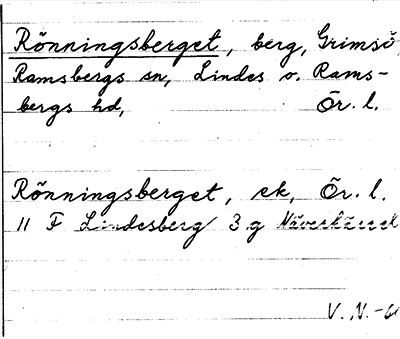 Rönningsberget, berg, Grimsö,
Ramsbergs sn, Lindes o. Rams-
bergs hd, Ör. l.
Rönningsberget, ek, Ör. l.
11 F Lindesberg 3 g
V. V. -60